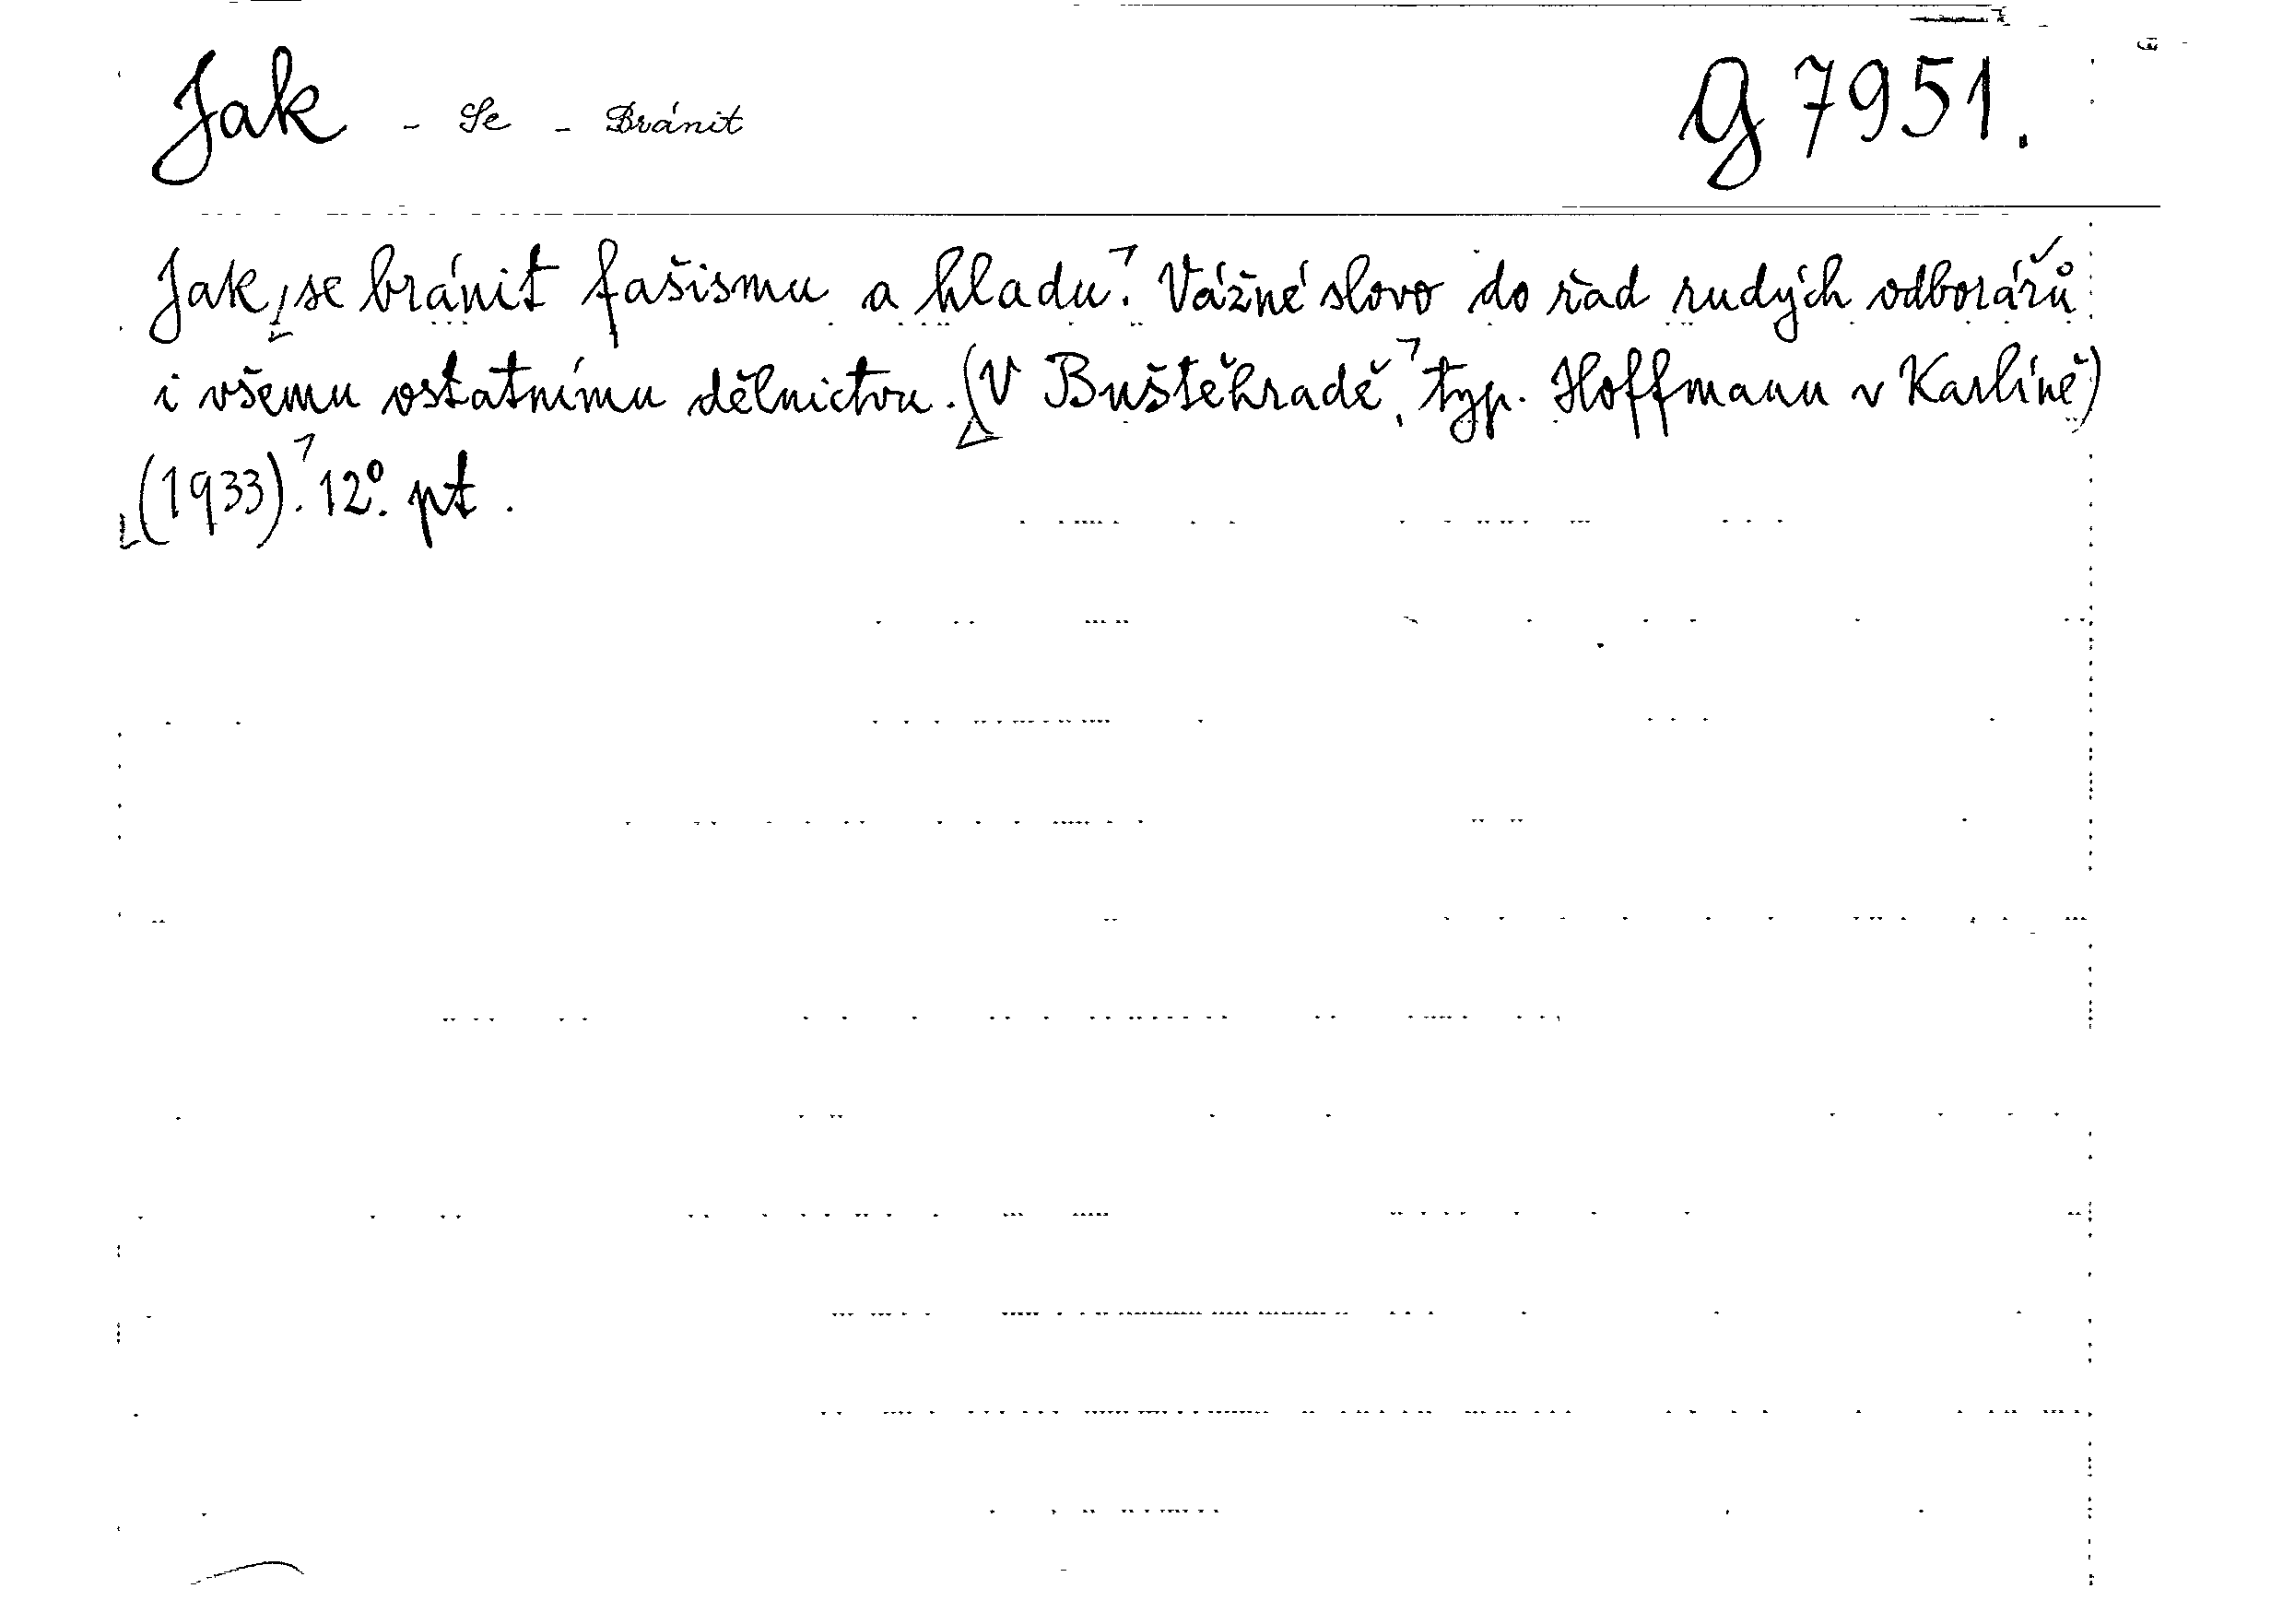 Jak - Se - Bránit
g 7951.
Jak se bránit fašismu a hladu? Vážné slovo do řad rudých odborářů
i všemu ostatnímu dělnictvu. (V Buštěhradě, typ. Hoffmann v Karlíně)
(1933). 12°. pt.